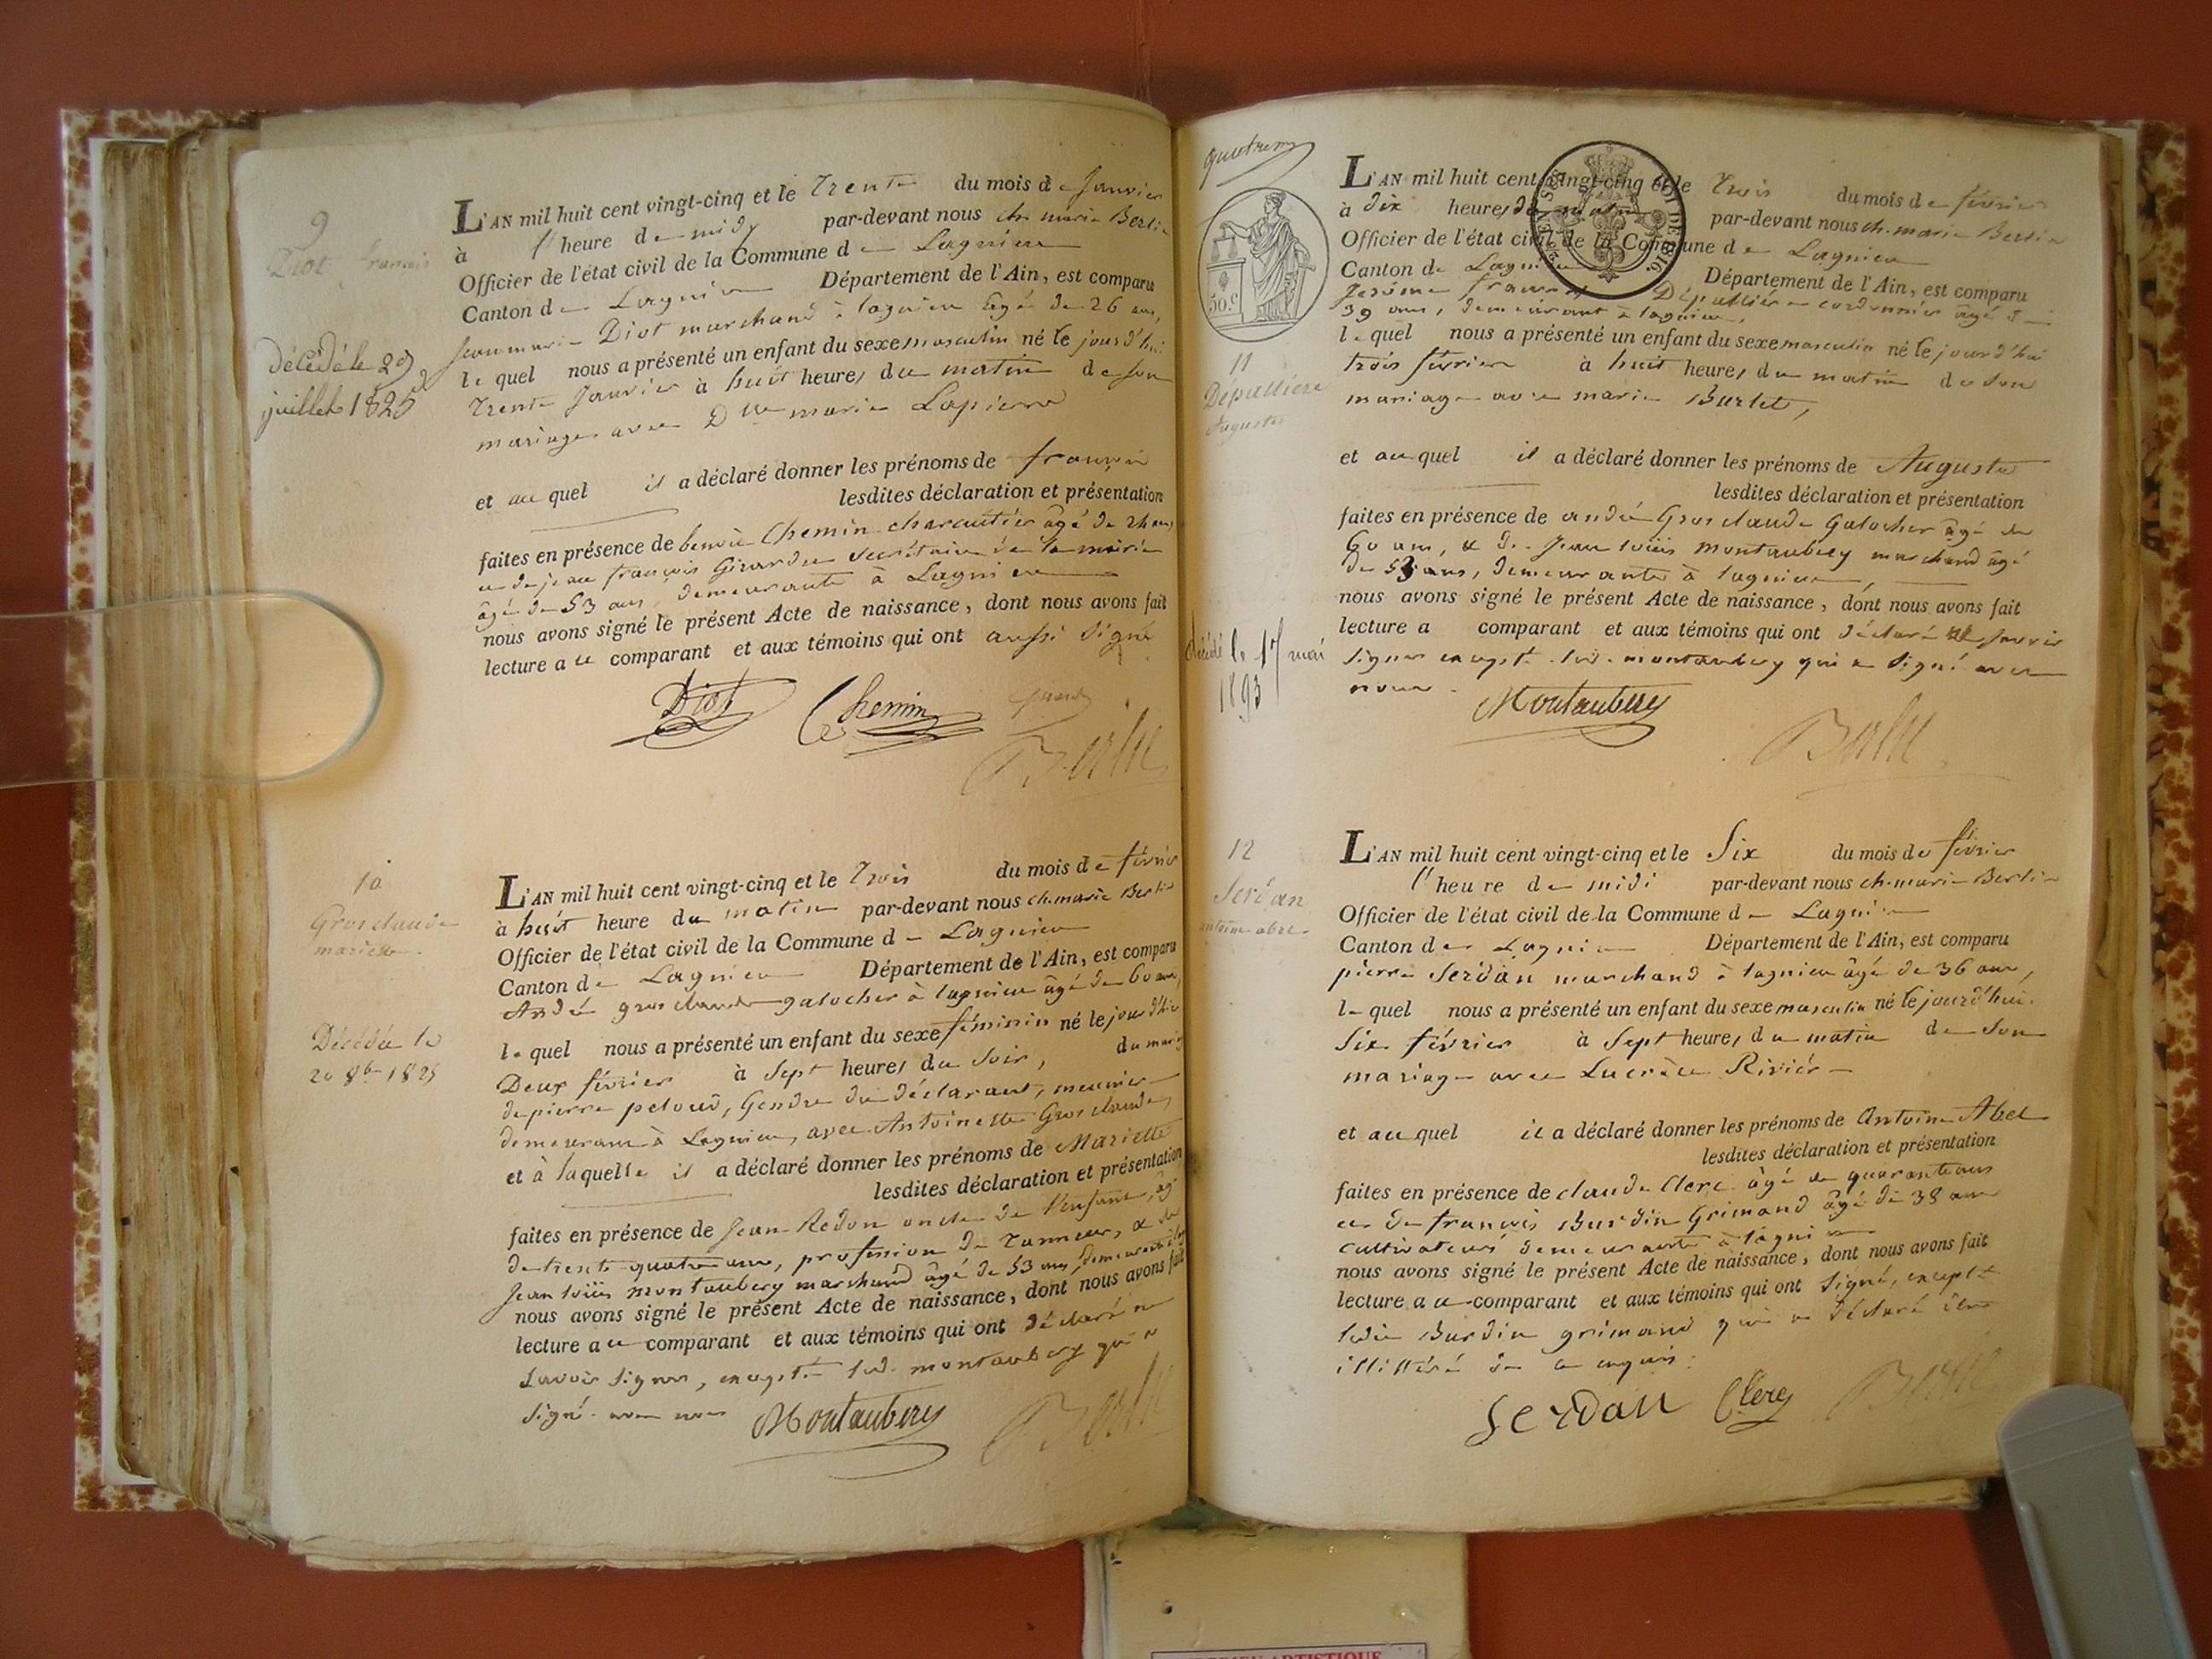 9
Diot françois
L'AN mil huit cent vingt-cinq et le Trente du mois de Janvier
à l'heure de midy par-devant nous ch. marie Berlie
Officier de l'état civil de la Commune de Lagnieu
Canton de Lagnieu Département de l'Ain, est comparu
Jean marie Diot marchand à lagnieu âgé de 26 ans,
lequel nous a présenté un enfant du sexe masculin né le jourd'hui
Trente Janvier à huit heures du matin de son
mariage avec Dlle marie Lapierre
et au quel il a déclaré donner les prénoms de françois
lesdites déclaration et présentation
faites en présence de benoit Chemin charcutier âgé de ans,
et de jean françois Girardu Secrétaire de la mairie
âgé de 53 ans demeurants à Lagnieu
nous avons signé le présent Acte de naissance, dont nous avons fait
lecture au comparant et aux témoins qui ont aussi signé
Diot Chemin
Berlie
Décédé le 29
juillet 1825
10
Grosclaude
mariette
L'AN mil huit cent vingt-cinq et le Trois du mois de février
à huit heure du matin par-devant nous ch. marie Berlie
Officier de l'état civil de la Commune de Lagnieu
Canton de Lagnieu Département de l'Ain, est comparu
André grosclaude galocher à lagnieu âgé de 60 ans,
lequel nous a présenté un enfant du sexe féminin né le jourd'hui
Deux février à Sept heures du Soir, du mariage
de pierre peloud, Gendre du déclarant, meunier
demeurant à Lagnieu, avec Antoinette Grosclaude,
et à laquelle il a déclaré donner les prénoms de Mariette
lesdites déclaration et présentation
faites en présence de Jean Redon oncle de l'enfant, âgé
de trente quatre ans, profession de Tanneur, & de
Jean louis montaubery marchand âgé de 53 ans, demeurants à
nous avons signé le présent Acte de naissance, dont nous avons fait
lecture au comparant et aux témoins qui ont déclaré ne
Savoir Signer, excepté led. montaubery qui a
Signé avec nous Montaubery Berlie
Décédée le
20 8bre 1825
L'AN mil huit cent vingt-cinq et le Trois du mois de février
à dix heures du matin par-devant nous ch. marie Berlie
Officier de l'état civil de la Commune de Lagnieu
Canton de Lagnieu Département de l'Ain, est comparu
Jerôme françois Dépallière cordonnier âgé de
39 ans, demeurant à lagnieu,
lequel nous a présenté un enfant du sexe masculin né le jourd'hui
trois février à huit heures du matin de son
mariage avec marie Burlet,
et au quel il a déclaré donner les prénoms de Auguste
lesdites déclaration et présentation
faites en présence de andré Grosclaude Galocher âgé de
60 ans, & de Jean louis montaubery marchand âgé
de 53 ans, demeurants à lagnieu,
nous avons signé le présent Acte de naissance, dont nous avons fait
lecture a comparant et aux témoins qui ont déclaré ne savoir
signer excepté led. montaubery qui a signé avec
nous. Montaubery
Berlie
50.c
11
Dépallière
Auguste
décédé le 17 mai
1893
12
Serdan
antoine abel
L'AN mil huit cent vingt-cinq et le Six du mois de février
l'heure de midi par-devant nous ch. marie Berlie
Officier de l'état civil de la Commune de Lagnieu
Canton de Lagnieu Département de l'Ain, est comparu
pierre Serdan marchand à lagnieu âgé de 36 ans,
lequel nous a présenté un enfant du sexe masculin né le jourd'hui
Six février à Sept heures du matin de Son
mariage avec Lucrèce Rivière
et au quel il a déclaré donner les prénoms de Antoine Abel
lesdites déclaration et présentation
faites en présence de claude Clerc âgé de quarante ans
et de françois Burdin Grimand âgé de 38 ans
cultivateurs demeurants à lagnieu
nous avons signé le présent Acte de naissance, dont nous avons fait
lecture au comparant et aux témoins qui ont Signé, excepté
ledit Burdin grimand qui a déclaré être
illittéré de ce enquis.
Serdan Clerc Berlie